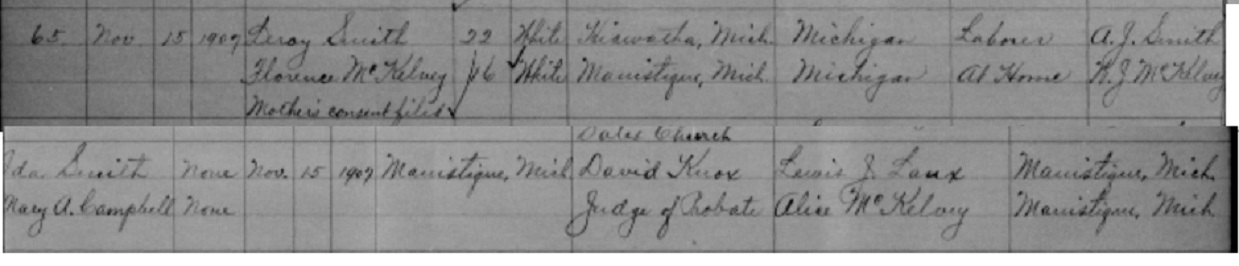 65 Nov. 15 1907 Leroy Smith 22 White Hiawatha, Mich. Michigan Laborer A. J. Smith
Florence McKelvey 16 White Manistique, Mich Michigan At Home R. J. McKelvey
Mother's consent filed
Sales Church
Ida Smith None Nov. 15 1907 Manistique, Mich David Knox Lewis J. Laux Manistique, Mich.
Mary A. Campbell None Judge of Probate Alice McKelvey Manistique, Mich